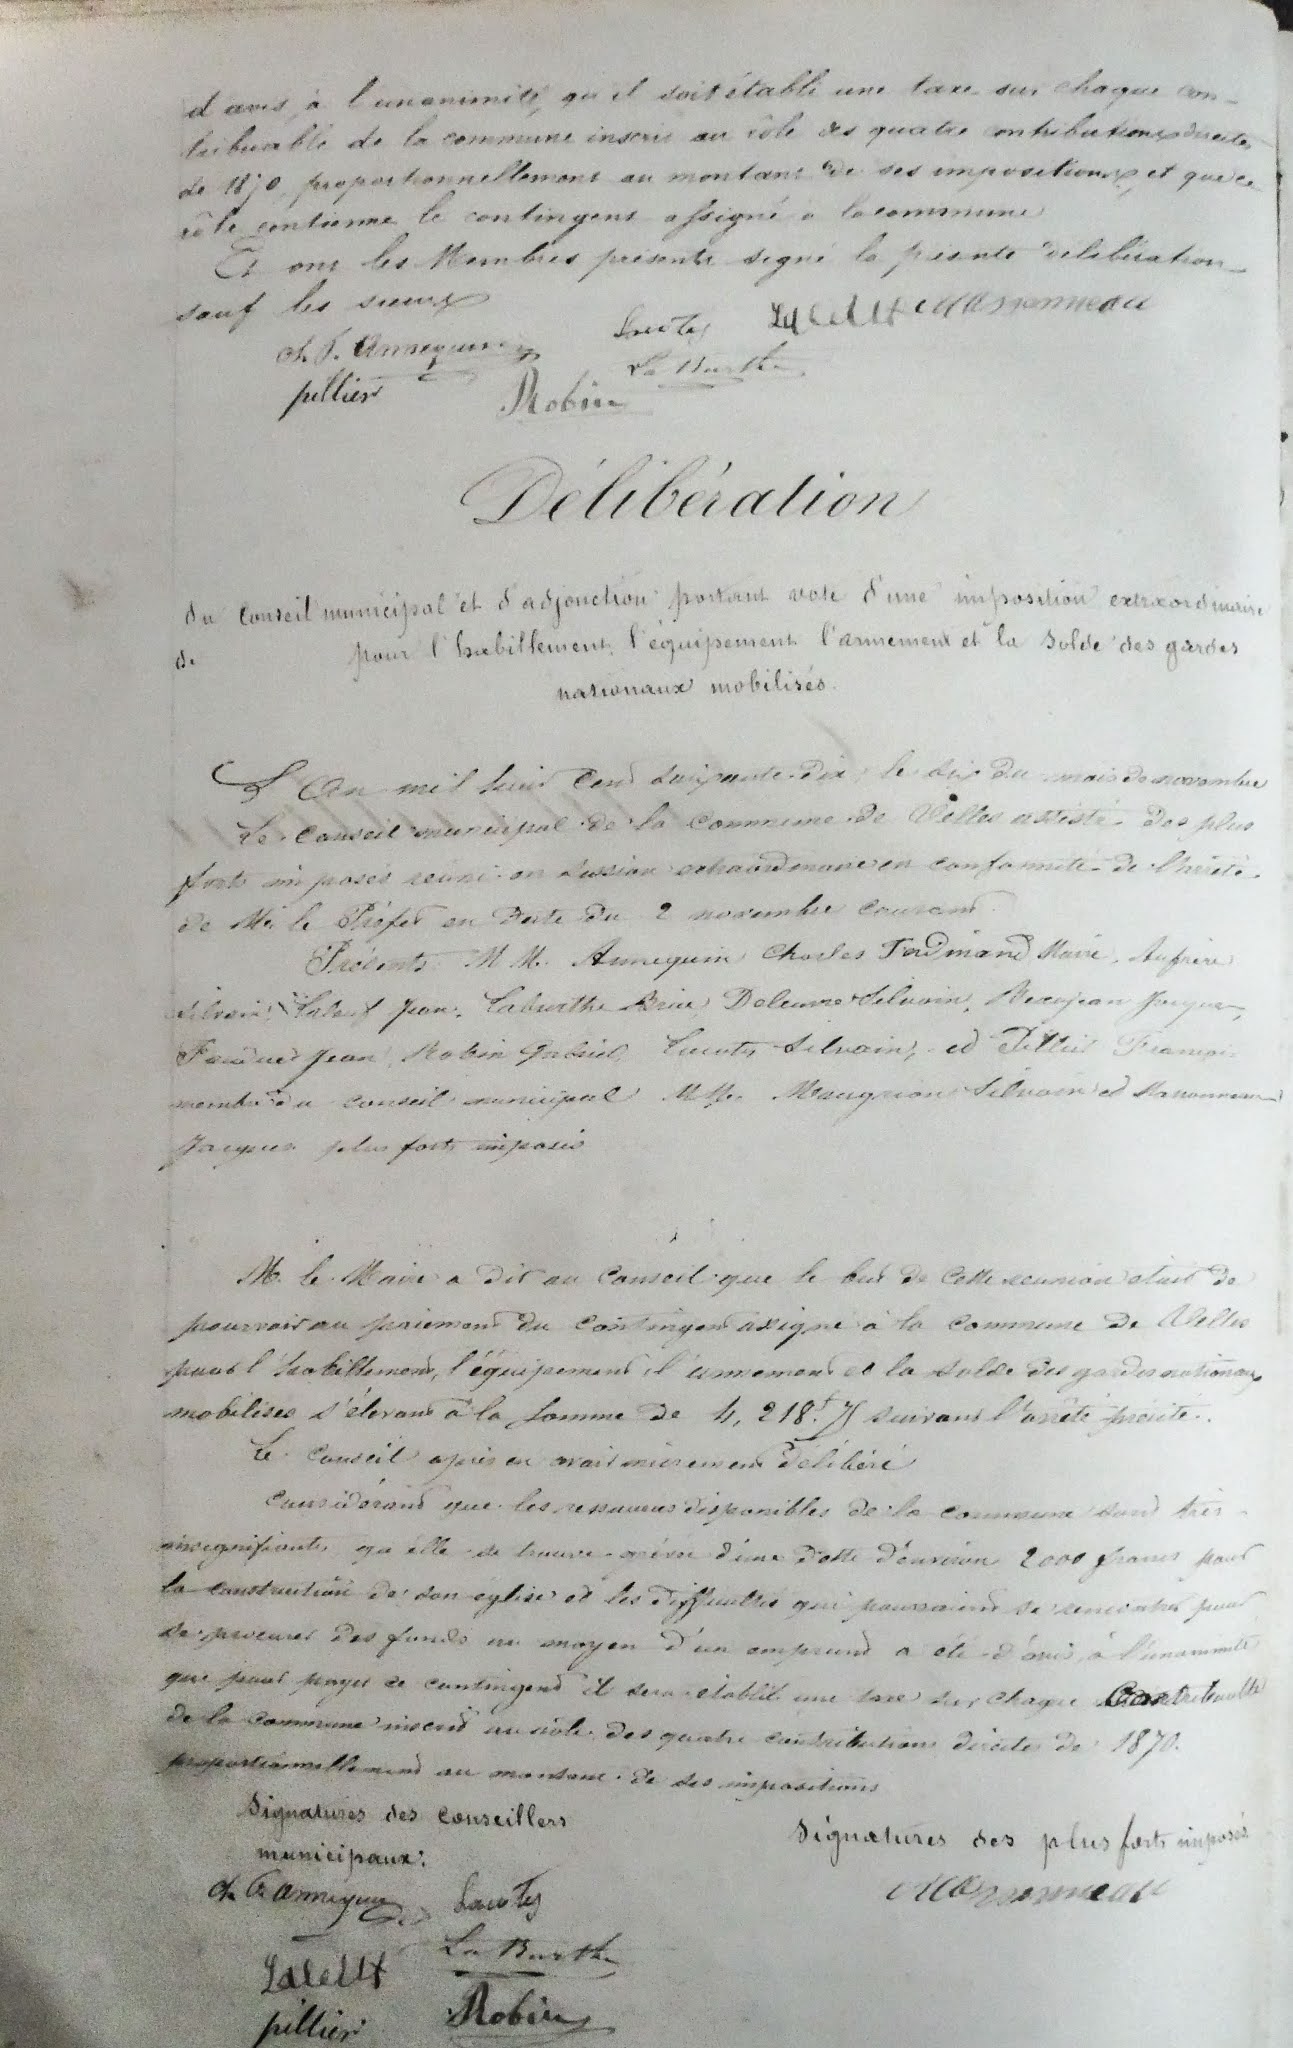 d'avis, à l'unanimité, qu'il soit établi une taxe sur chaque con-
tribuable de la commune inscrit au rôle des quatre contributions directes
de 1870, proportionnellement au montant de ses impositions, et que ce
rôle contienne le contingent assigné à la commune
Et ont les Membres présents signé la présente délibération
sauf les sieurs
ch. f. Annequin Lucoty Laleuf Massonneau
pillier Robin La Burthe
Délibération
du Conseil municipal et d'adjonction portant vote d'une imposition extraordinaire
de pour l'habillement, l'équipement l'armement et la solde des gardes
nationaux mobilisés.
L'An mil huit cent soixante-dix, le six du mois de novembre
Le Conseil municipal de la Commune de Velles assisté des plus
forts imposés réuni en session extraordinaire en conformité de l'arrêté
de Mr. le Préfet en date du 2 novembre courant.
Présents M M. Annequin Charles Ferdinand Maire, Aufrère
Silvain, Laleuf Jean, Laburthe Delorme Silvain, Beaujean Jacques,
Jean, Robin Gabriel, Lucoty Silvain, et Pillier François
membres du conseil municipal MM. Silvain et Massonneau
Jacques plus forts imposés
M. le Maire a dit au Conseil que le but de cette réunion était de
pourvoir au paiement du contingent assigné à la commune de Velles
pour l'habillement, l'équipement, l'armement et la solde des gardes nationaux
mobilisés s'élevant à la somme de 4,218 f suivant l'arrêté précité.
Le Conseil après en avoir mûrement délibéré
Considérant que les ressources disponibles de la commune sont très
insignifiantes qu'elle se trouve grévée d'une dette d'environ 2000 francs pour
la construction de son église et les difficultés qui pourraient se rencontrer pour
se procurer des fonds au moyen d'un emprunt a été d'avis, à l'unanimité
que pour payer ce contingent il sera établit une taxe sur chaque Contribuable
de la commune inscrit au rôle des quatre contributions directes de 1870.
proportionnellement au montant de ses impositions
Signatures des Conseillers
municipaux:
Signatures des plus forts imposés
ch f annequin Lucoty Massonneau
Laleuf La Burthe
pillier Robin